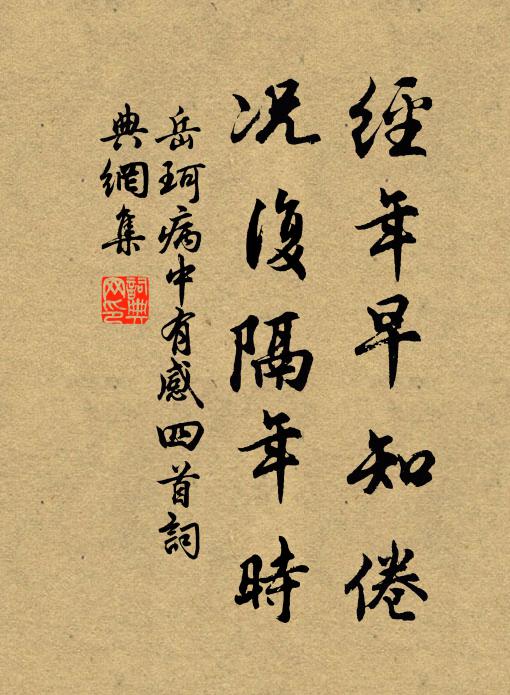 經年早知倦
况復隔年時
岳珂病中有感四首詞
典網集
詞典
网印